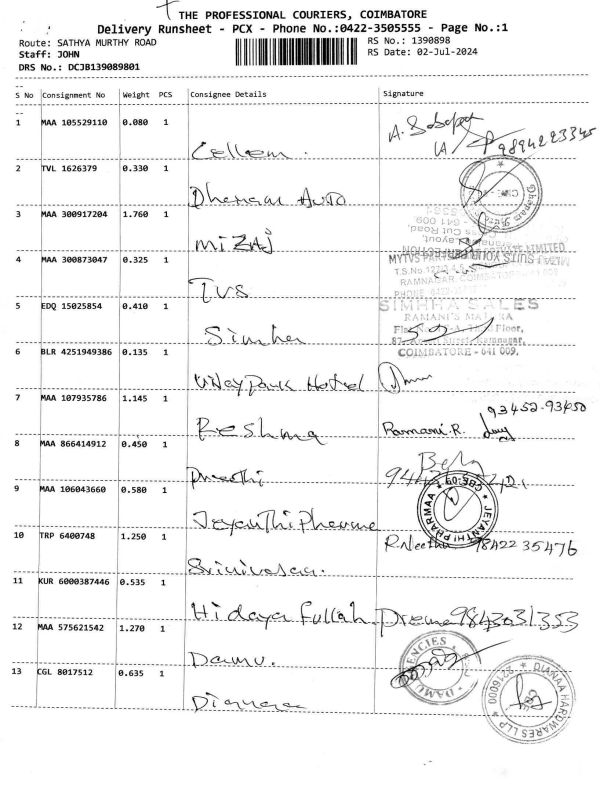 THE PROFESSIONAL COURIERS, COIMBATORE
Delivery Runsheet - PCX - Phone No.:0422-3505555 - Page No.:1
Route: SATHYA MURTHY ROAD RS No.: 1390898
Staff: JOHN RS Date: 02-Jul-2024
DRS No.: DCJB139089801
S No Consignment No Weight PCS Consignee Details Signature
1 MAA 105529110 0.080 1
Cellem. 9894223345
2 TVL 1626379 0.330 1
Dhanam Auto
3 MAA 300917204 1.760 1
MIZAJ
4 MAA 300873047 0.325 1
TVS
5 EDQ 15025854 0.410 1
SIMHA SALES
RAMANI'S
Floor,
COIMBATORE - 641 009.
Simha
6 BLR 4251949386 0.135 1
Park Hotel
7 MAA 107935786 1.145 1
93452-93650
Reshma Ramani.R.
8 MAA 866414912 0.450 1
Preethi
9 MAA 106043660 0.580 1
JEYANTHI PHARMAA
Jeyanthi Pharma
10 TRP 6400748 1.250 1
R.Neetha 9842235476
Srinivasan.
11 KUR 6000387446 0.535 1
Hidayafullah Prema 9843031353
12 MAA 575621542 1.270 1
Damu.
DAMU AGENCIES
13 CGL 8017512 0.635 1
Dianaa
DIANAA HARDWARES LLP